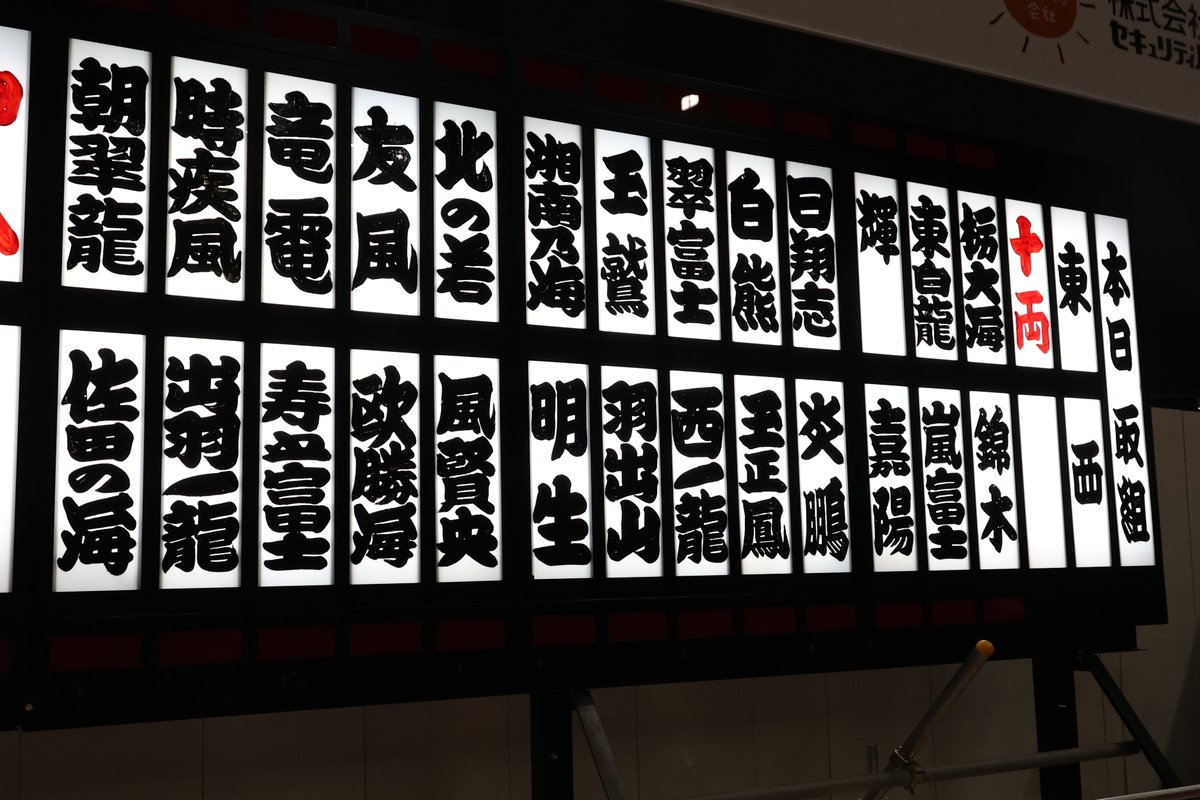 本日取組
東
西
十両
栃大海
錦木
東白龍
嵐富士
輝
嘉陽
日翔志
炎鵬
白熊
玉正鳳
翠富士
西一龍
玉鷲
羽出山
湘南乃海
明生
北の若
風賢央
友風
欧勝海
竜電
寿之富士
時疾風
出羽一龍
朝翠龍
佐田の海
会社
株式会社
セキュリティ